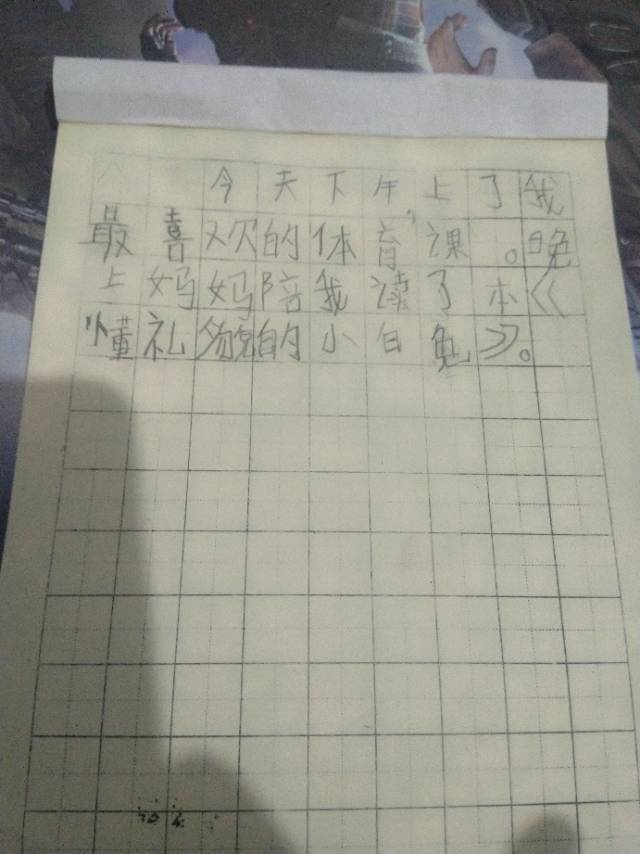 今天下午，上了我
最喜欢的体育课。晚
上妈妈陪我读了本《
懂礼貌的小白兔》。